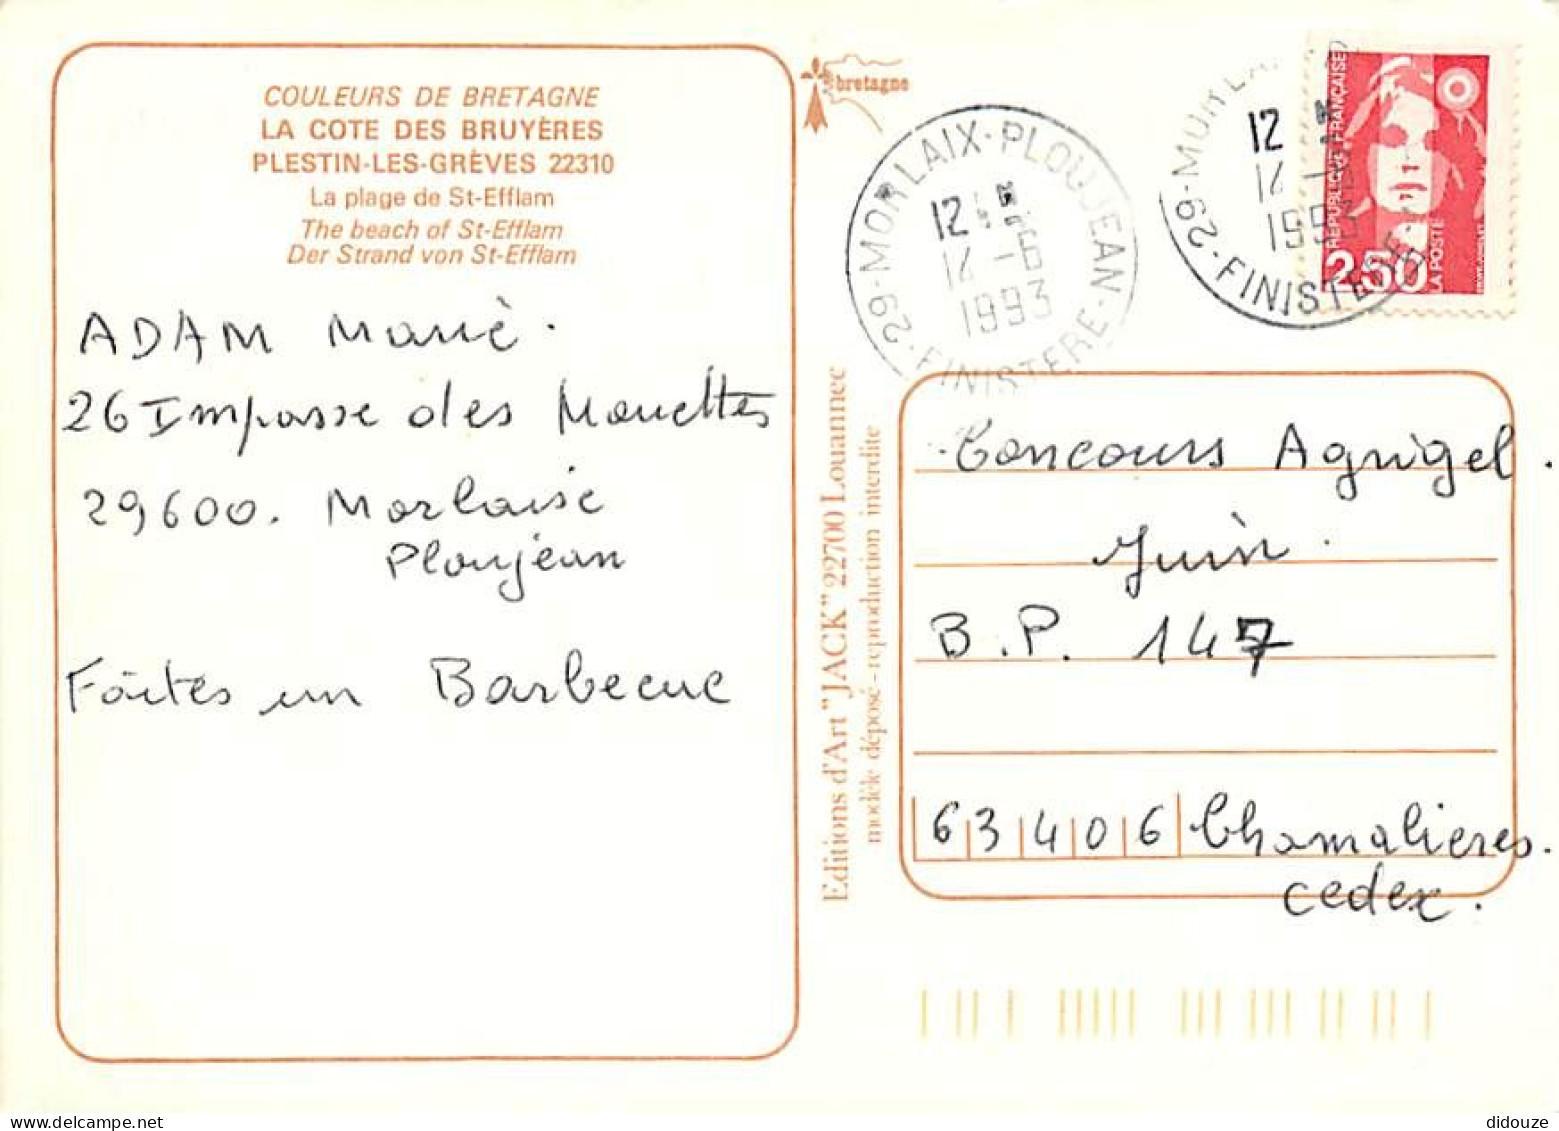 COULEURS DE BRETAGNE
LA COTE DES BRUYÈRES
PLESTIN-LES-GRÈVES 22310
La plage de St-Efflam
The beach of St-Efflam
Der Strand von St-Efflam
ADAM Marie.
26 Impasse des Mouettes
29600. Morlaise
Ploujean
Faites un Barbecue
bretagne
Editions d'Art "JACK" 22700 Louannec
modèle déposé - reproduction interdite
29 - MORLAIX - PLOUJEAN - FINISTERE
12 H
12 -6
1993
29 - MORLAIX
FINISTERE
12 H
12 -6
1993
REPUBLIQUE FRANÇAISE
2,50
LA POSTE
Concours Agrigel.
Juin.
B.P. 147
63406 Chamalieres.
cedex.
didouze